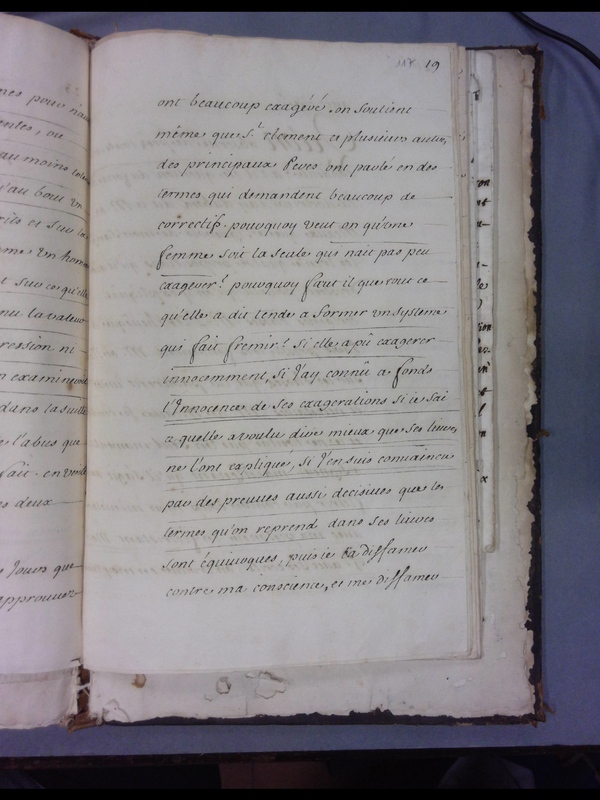 nes pour n'au
entes, ou
au moins
qu'au bout un
rits et sur la
me un homme
t sur ce qu'elle
nu la valeur
ression ni
n examineroit
dans la suitte
e l'abus que
fait. en un
es deux
s Jours que
approuver
117 19
ont beaucoup exagéré. on soutient
même que St. clement et plusieurs autres
des principaux Peres ont parlé en des
termes qui demandent beaucoup de
correctif. pourquoy veut on qu'une
femme soit la seule qui n'ait pas peu
exagerer? pourquoy faut il que tout ce
qu'elle a dit tende a former un systeme
qui fait fremir? si elle a pû exagerer
innocemment, si J'ay connû a fonds
l'Innocence de ses exagerations si ie sai
ce quelle a voulu dire mieux que ses livres
ne l'ont expliqué, si J'en suis convaincu
par des preuves aussi decisives que les
termes qu'on reprend dans ses livres
sont équivoques, puis ie la diffamer
contre ma conscience, et me diffamer